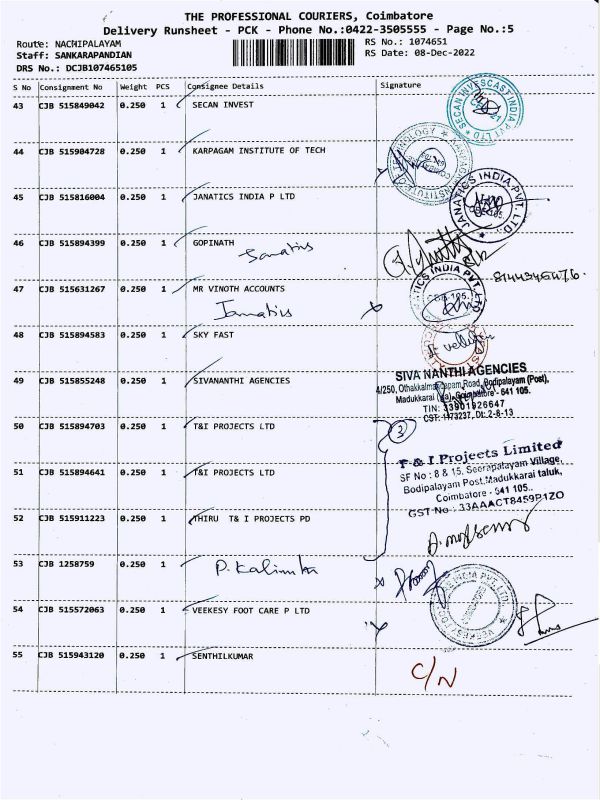 THE PROFESSIONAL COURIERS, Coimbatore
Delivery Runsheet - PCK - Phone No.:0422-3505555 - Page No.:5
Route: NACHIPALAYAM
RS No.: 1074651
Staff: SANKARAPANDIAN
RS Date: 08-Dec-2022
DRS No.: DCJB107465105
S No Consignment No Weight PCS Consignee Details Signature
43 CJB 515849042 0.250 1 SECAN INVEST
SECAN INVESCAST INDIA PVT LTD
44 CJB 515904728 0.250 1 KARPAGAM INSTITUTE OF TECH
KARPAGAM INSTITUTE OF TECHNOLOGY
45 CJB 515816004 0.250 1 JANATICS INDIA P LTD
JANATICS INDIA PVT. LTD.
46 CJB 515894399 0.250 1 GOPINATH
Janatics
8144345476.
47 CJB 515631267 0.250 1 MR VINOTH ACCOUNTS
Janatics
48 CJB 515894583 0.250 1 SKY FAST
49 CJB 515855248 0.250 1 SIVANANTHI AGENCIES
SIVA NANTHI AGENCIES
4/250, Othakkalmandapam Road, Bodipalayam (Post),
Madukkarai (Via), Coimbatore - 641 105.
TIN: 33901926647
CST: 1173237, Dt: 2-8-13
50 CJB 515894703 0.250 1 T&I PROJECTS LTD
3
51 CJB 515894641 0.250 1 T&I PROJECTS LTD
T & I Projects Limited
SF No : 8 & 15, Seerapalayam Village,
Bodipalayam Post, Madukkarai taluk,
Coimbatore - 641 105..
GST No : 33AAACT8459P1ZO
52 CJB 515911223 0.250 1 THIRU T& I PROJECTS PD
53 CJB 1258759 0.250 1
54 CJB 515572063 0.250 1 VEEKESY FOOT CARE P LTD
55 CJB 515943120 0.250 1 SENTHILKUMAR
C/N